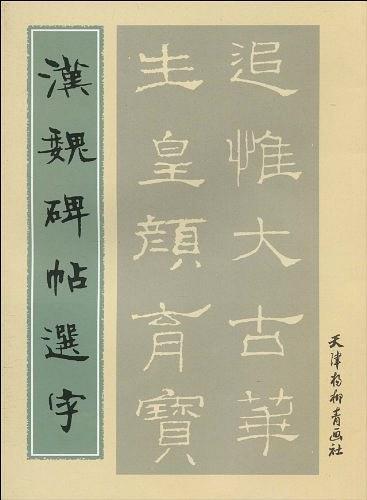 追惟大古華
生皇顔育寶
漢魏碑帖選字
天津杨柳青画社